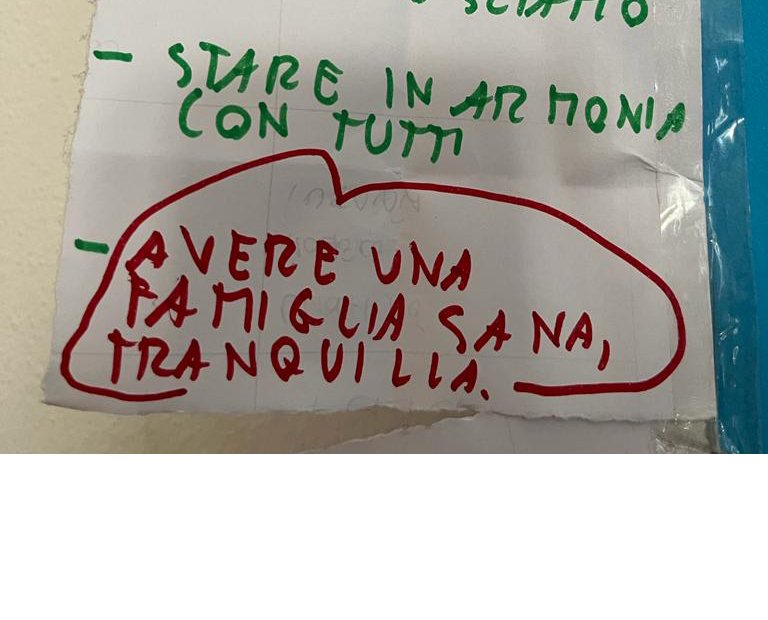 - STARE IN ARMONIA
CON TUTTI
- AVERE UNA
FAMIGLIA SANA,
TRANQUILLA.